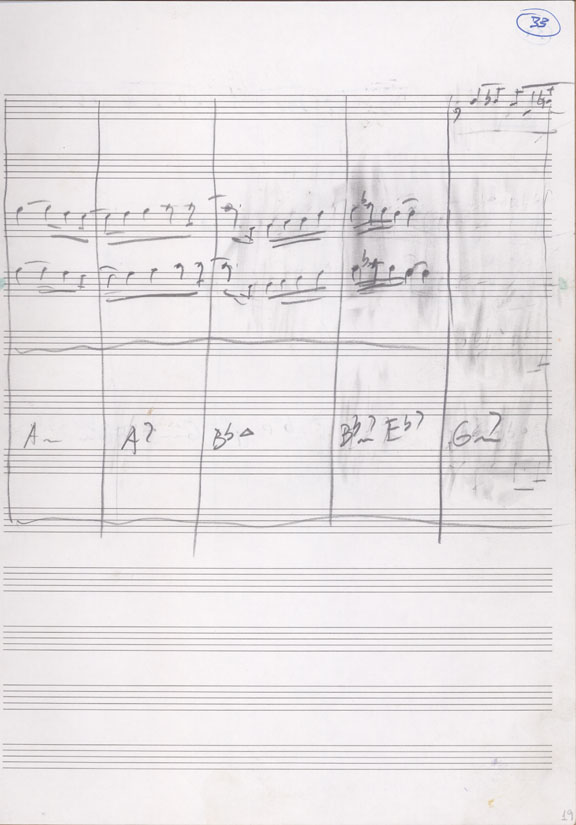 33
A- A7 B♭△ B♭7- E♭7 G-7
19